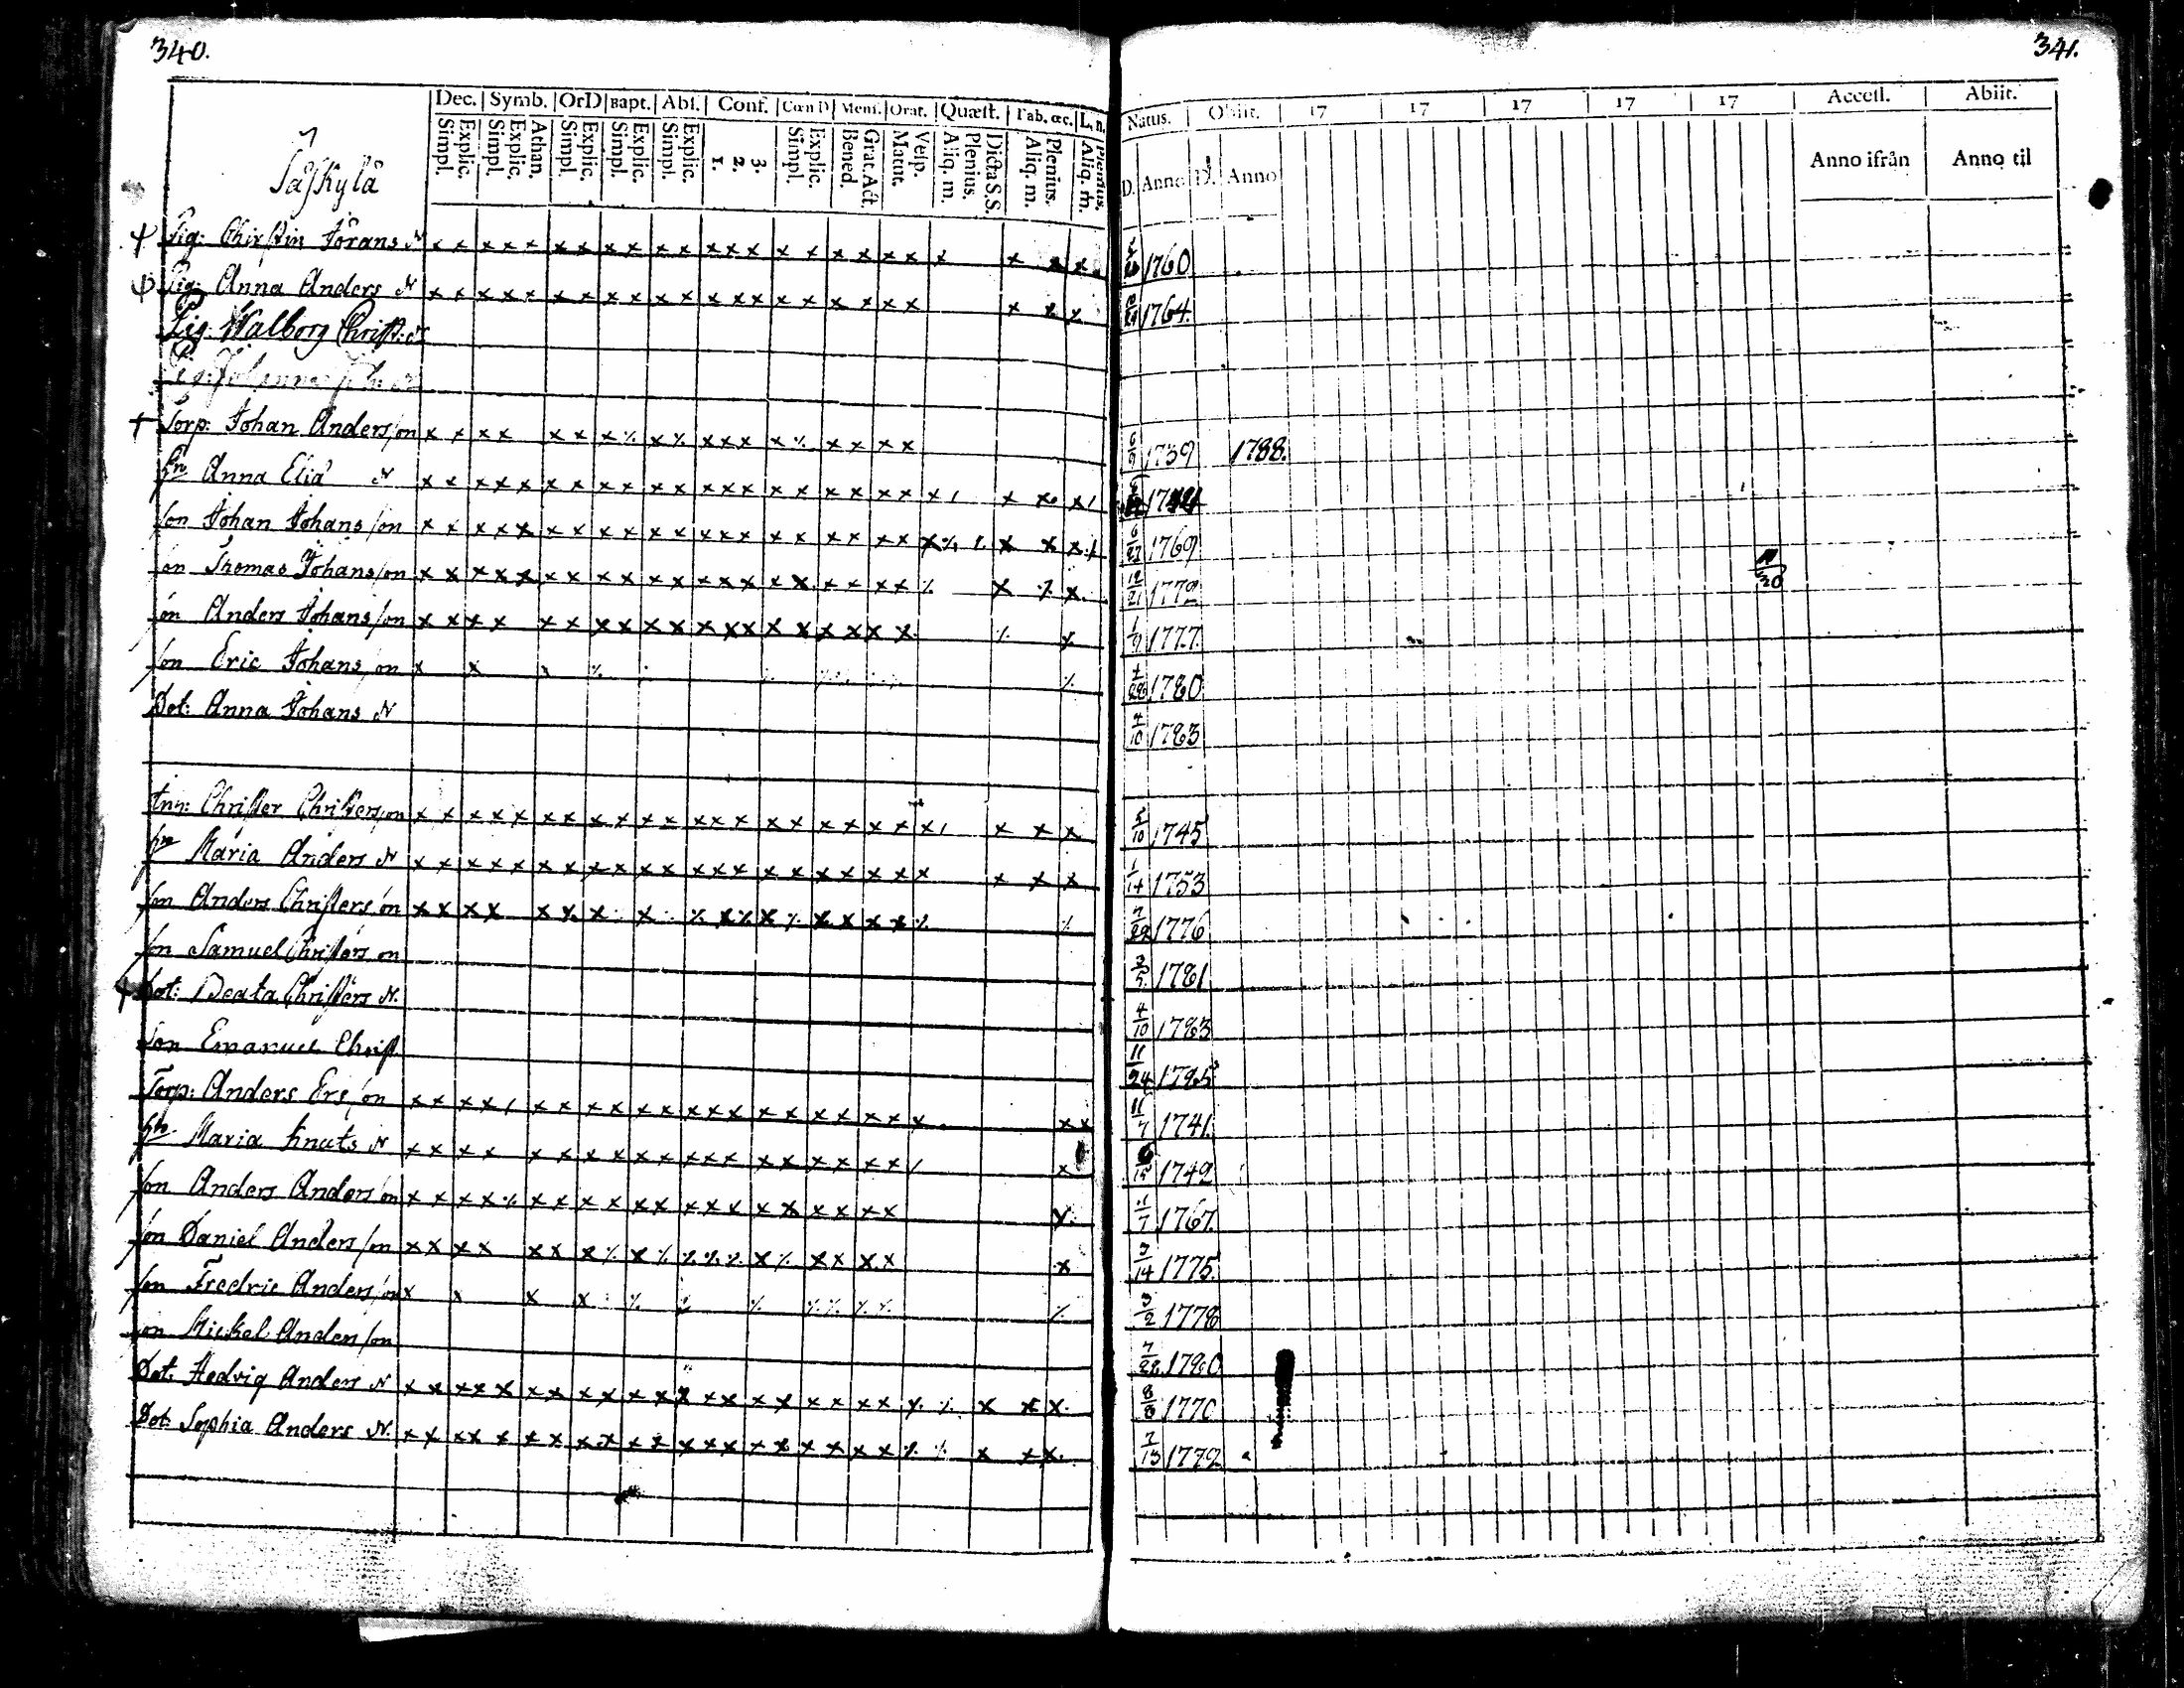 340.
341.
Dec. Symb. OrD Bapt. Abs. Conf. Cœn D Menſ. Orat. Quæſt. Tab. œc. L. n.
Simpl. Explic. Simpl. Explic. Athan. Simpl. Explic. Simpl. Explic. Simpl. Explic. 1. 2. 3. Simpl. Explic. Bened. Grat. Act. Matut. Veſp. Aliq. m. Plenius. Dicta S.S. Aliq. m. Plenius. Aliq. m. Plenius.
Natus. Obiit. 17 17 17 17 17 Acceſſ. Abiit.
D. Anno D. Anno Anno ifrån Anno til
Säſkylä
Pig: Chirstin Jörans N 1760
Pig: Anna Anders N 1764.
Pig: Walborg Christ: N
Pig: Johanna
† Torp: Johan Anders/on 6/9 1739 1788.
hu Anna Elia N
son Johan Johans/on 6/27 1769
son Thomas Johans/on 12/21 1772 11/30
son Anders Johans/on 1777.
son Eric Johans/on 1780
Dot: Anna Johans N 4/10 1783
Inn: Christer Christers/on 5/10 1745
hu Maria Anders N 1/14 1753
son Anders Christers/on 7/22 1776
son Samuel Christers/on 3/5 1781
Dot: Beata Christers N. 4/10 1783
Son Emanuel Christ 11/24 1785
Torp: Anders Ers/on 11/7 1741.
hu Maria Knuts N 6/15 1749
son Anders Anders/on 1767.
son Daniel Anders/on 3/14 1775.
son Fredric Anders/on 3/2 1778
son Mickel Anders/on 7/28 1780
Dot: Hedvig Anders N 8/8 1770
Dot: Sophia Anders N. 7/13 1772